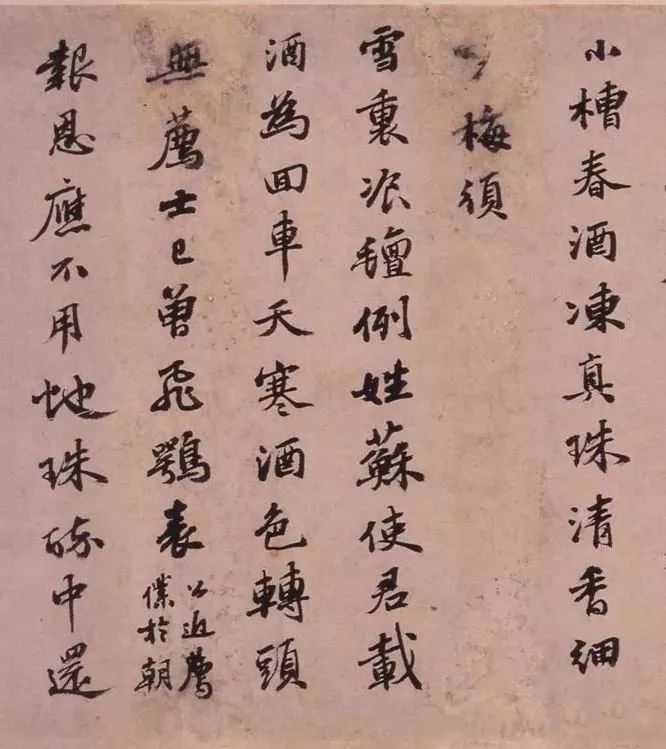 小槽春酒凍真珠清香細
梅須
雪裏飡氈例姓蘇使君載
酒為囬車天寒酒色轉頭
無薦士已曾飛鶚表公近薦
僕於朝
報恩應不用虵珠醉中還